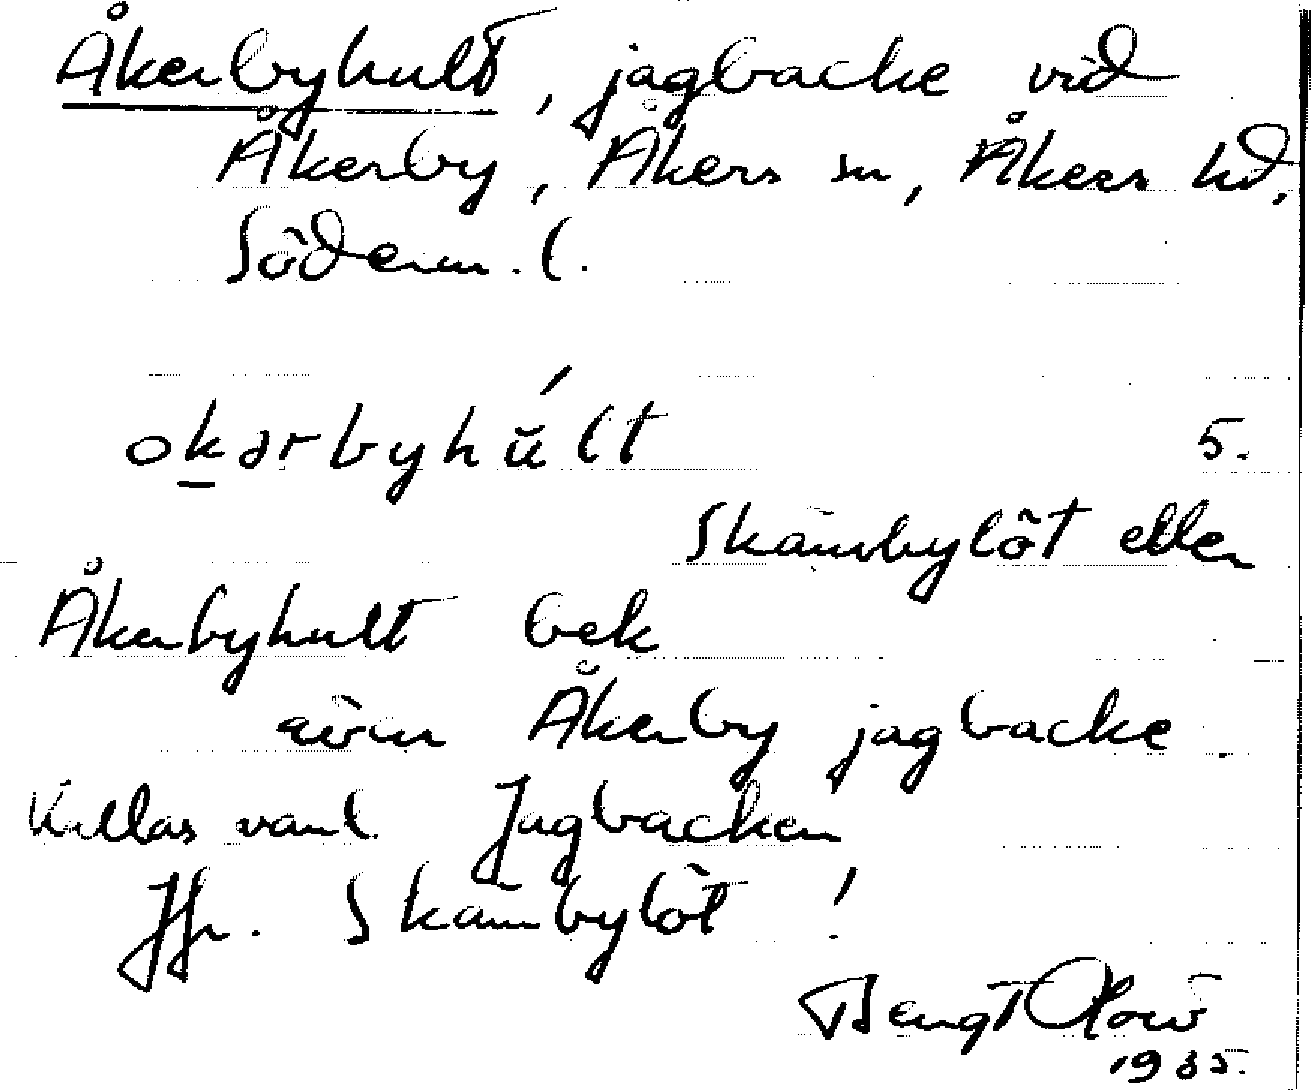 Åkerbyhult, jagbacke vid
Åkerby, Åkers sn, Åkers hd,
Söderm. l.
okarbyhúlt 5.
Skämbylöt eller
Åkerbyhult bek
även Åkerby jagbacke.
Kallas vanl. Jagbacken
Jfr. Skämbylöt !
Bengt
1935.